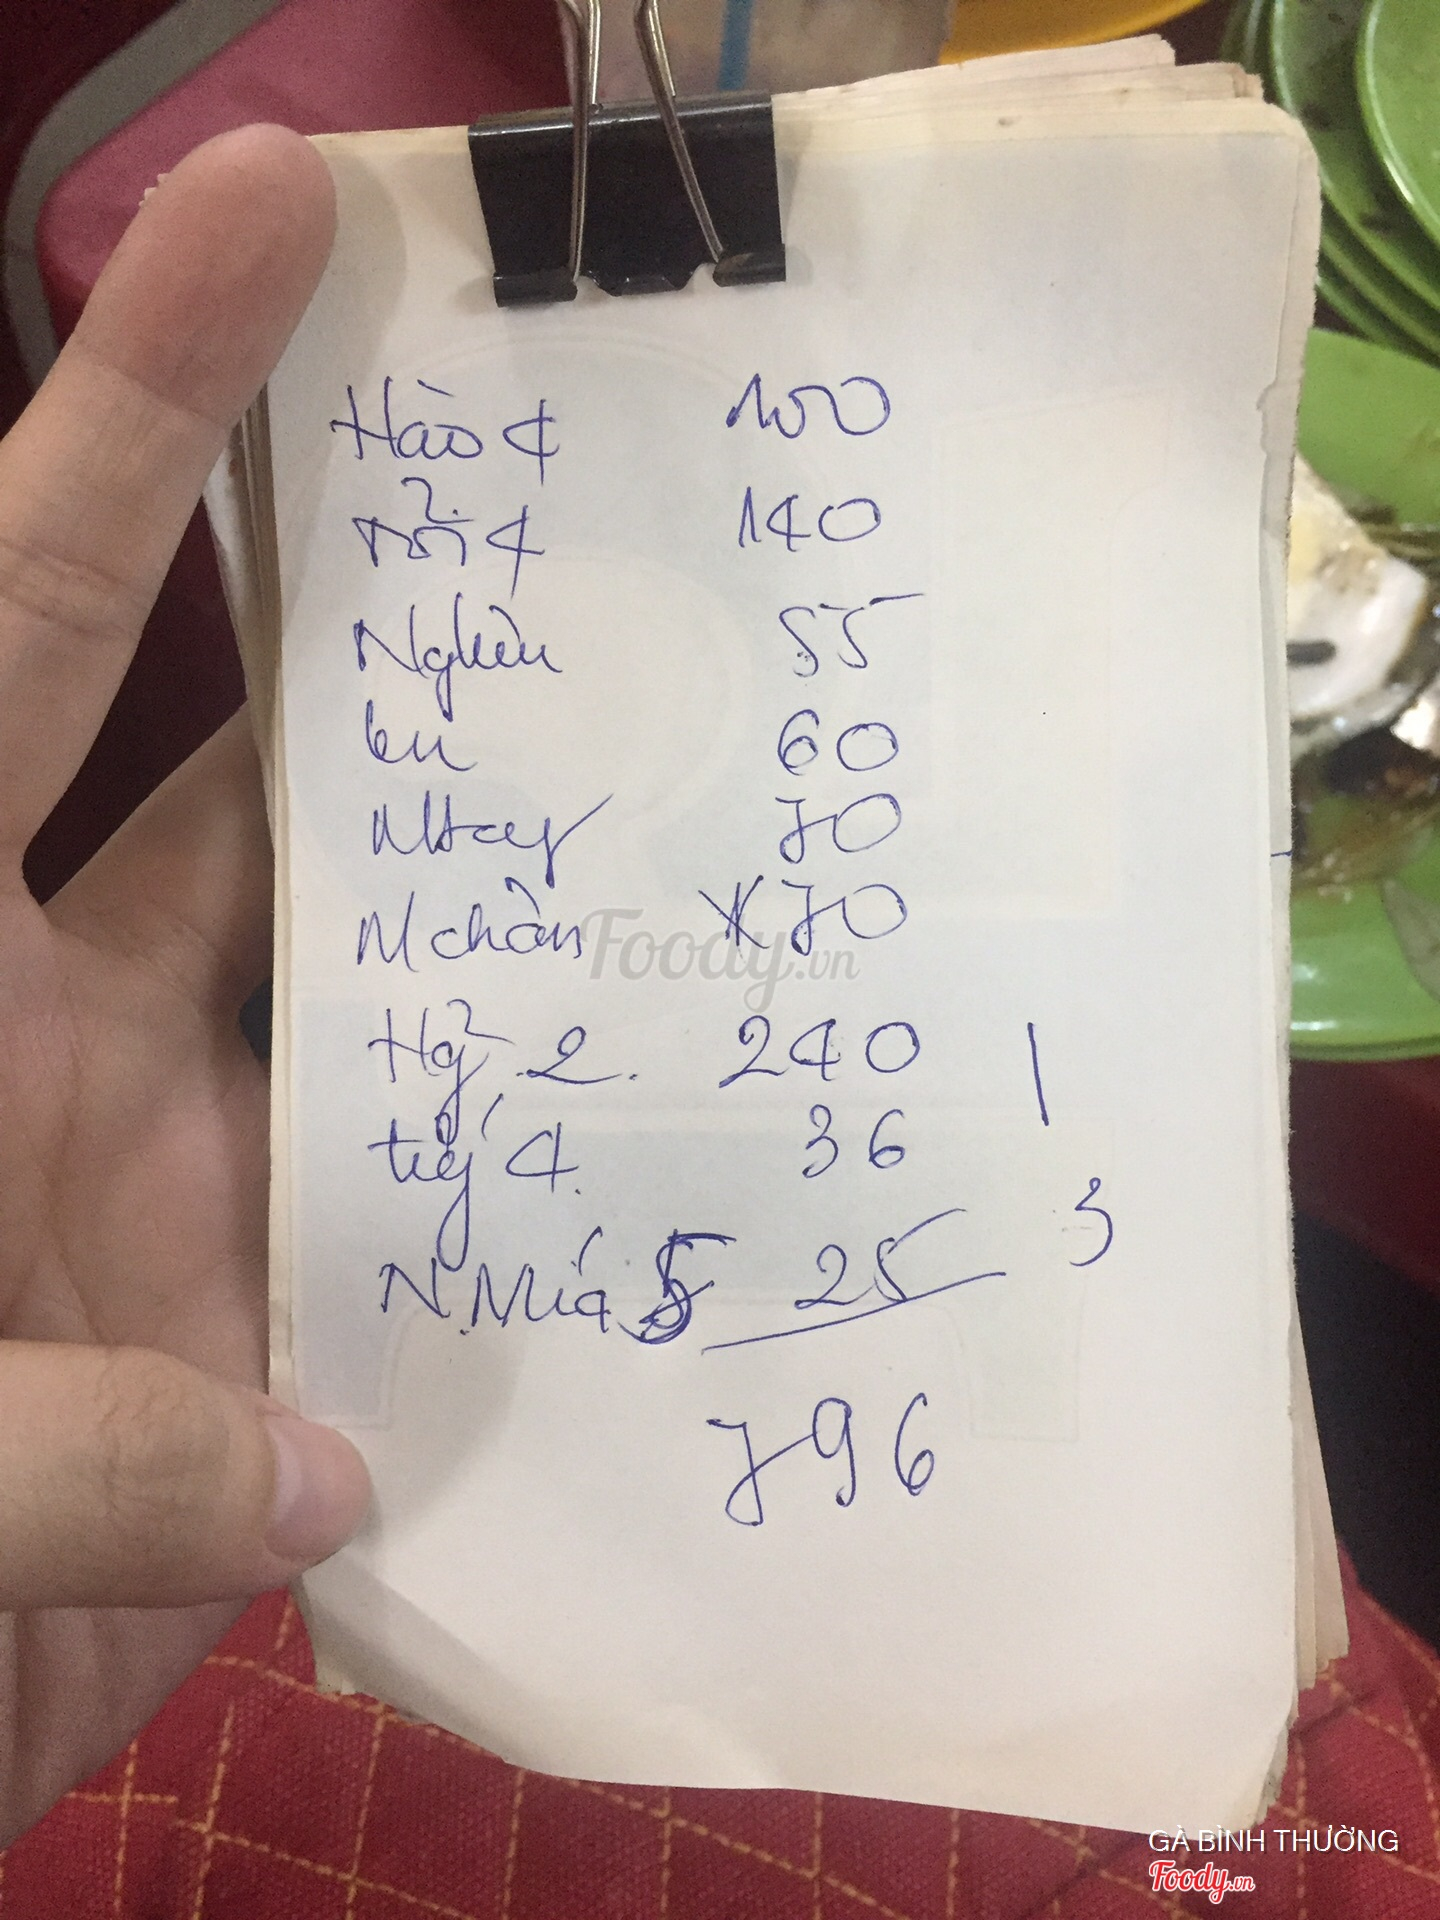 Hào 4 100
Sò 4 140
Nghêu 55
60
M tay 70
M chân 70
2. 240 1
4. 36
3
N. Mía 5 25
796
Foody.vn
GÀ BÌNH THƯỜNG
Foody.vn